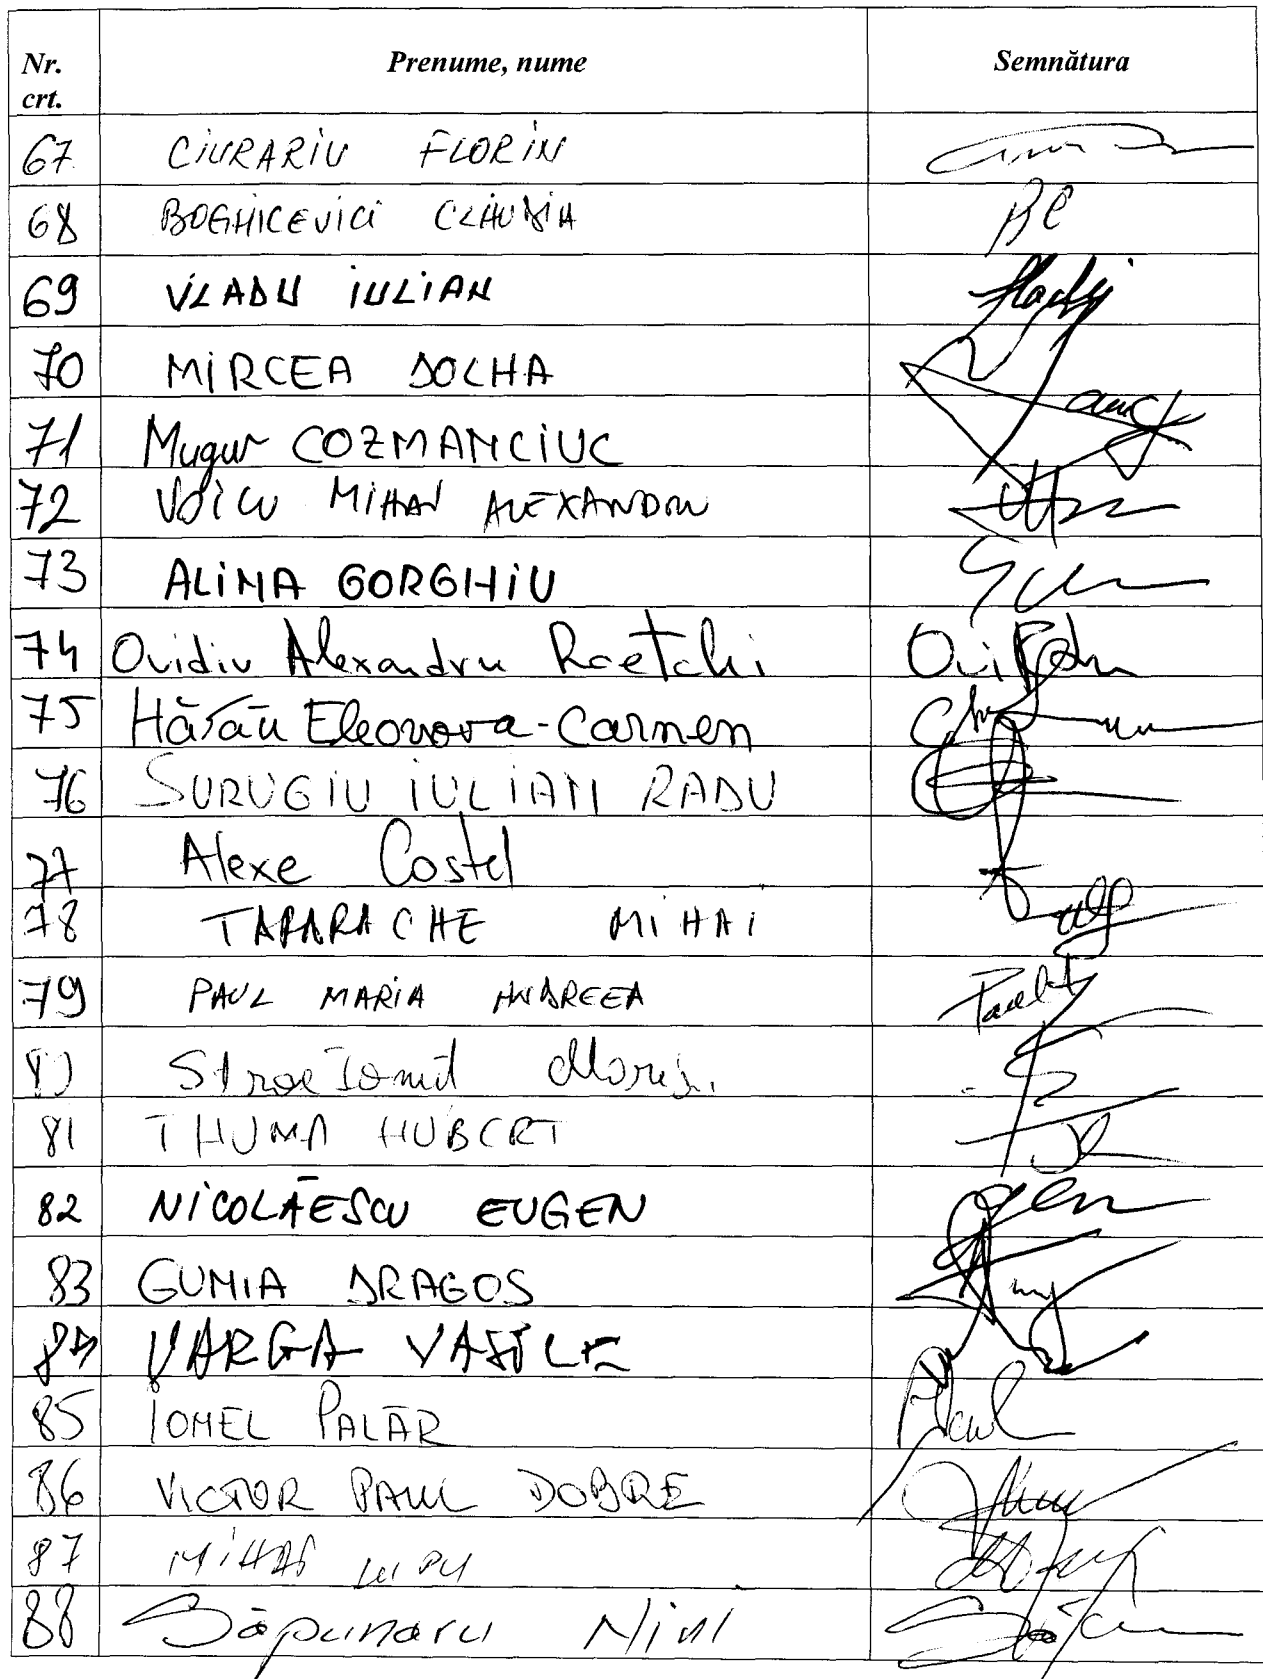 Nr. crt. Prenume, nume Semnătura
67 CIURARIU FLORIN
68 BOGHICEVICI CLAUDIA
69 VLADU IULIAN
70 MIRCEA DOLHA
71 Mugur COZMANCIUC
72 VOICU MIHAI ALEXANDRU
73 ALINA GORGHIU
74 Ovidiu Alexandru Raetchi
75 Hărău Eleonora-Carmen
76 SURUGIU IULIAN RADU
77 Alexe Costel
78 TAPARACHE MIHAI
79 PAUL MARIA ANDREEA
80 Stroe Ionuț
81 THUMA HUBERT
82 NICOLĂESCU EUGEN
83 GUNIA DRAGOS
84 VARGA VASILE
85 IONEL PALĂR
86 VICTOR PAUL DOBRE
87 MIHAI LUPU
88 Săpunaru Nini